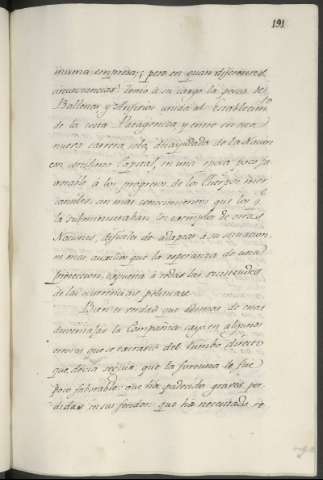 191
misma empresa; pero en quan diferentes
circunstancias tomó á su cargo la pesca de
Ballenas y anfivios unida al Establecim.to
de la costa Patagonica y entró en una
nueva carrera sola, desayudada de la Nacion
con cortisimo Capital, en una epoca poco fa
borable á los progresos de los Cuerpos mer
cantiles sin mas conocimientos que los q.e
la subministraban los exemplos de otras
Naciones, dificiles de adaptar á su situacion
ni mas auxilios que la esperanza de una
proteccion, expuesta á todas las vicisitudes
de las ocurrencias politicas.
Bien es verdad que ademas de estas
desventajas la Compañia cayó en algunos
errores que se extravió del rumbo directo
que devia seguir que la fortuna le fue
poco faborable: que ha padecido graves per
didas en sus fondos: que ha necesitado re